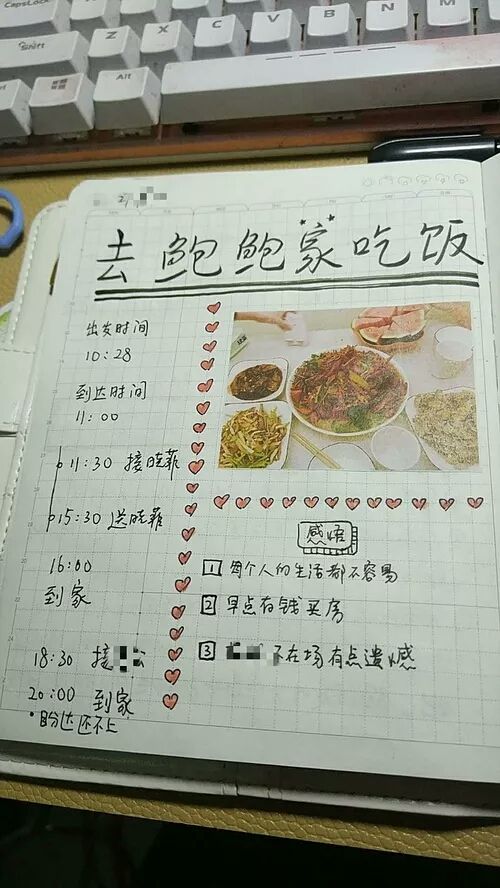 CapsLock
Shift
Alt
Z
X
C
V
B
N
M
27
去鲍鲍家吃饭
出发时间
10:28
到达时间
11:00
11:30 接晓菲
15:30 送晓菲
16:00
到家
18:30 接
20:00 到家
感悟
1 每个人的生活都不容易
2 早点有钱买房
3 不在场有点遗憾